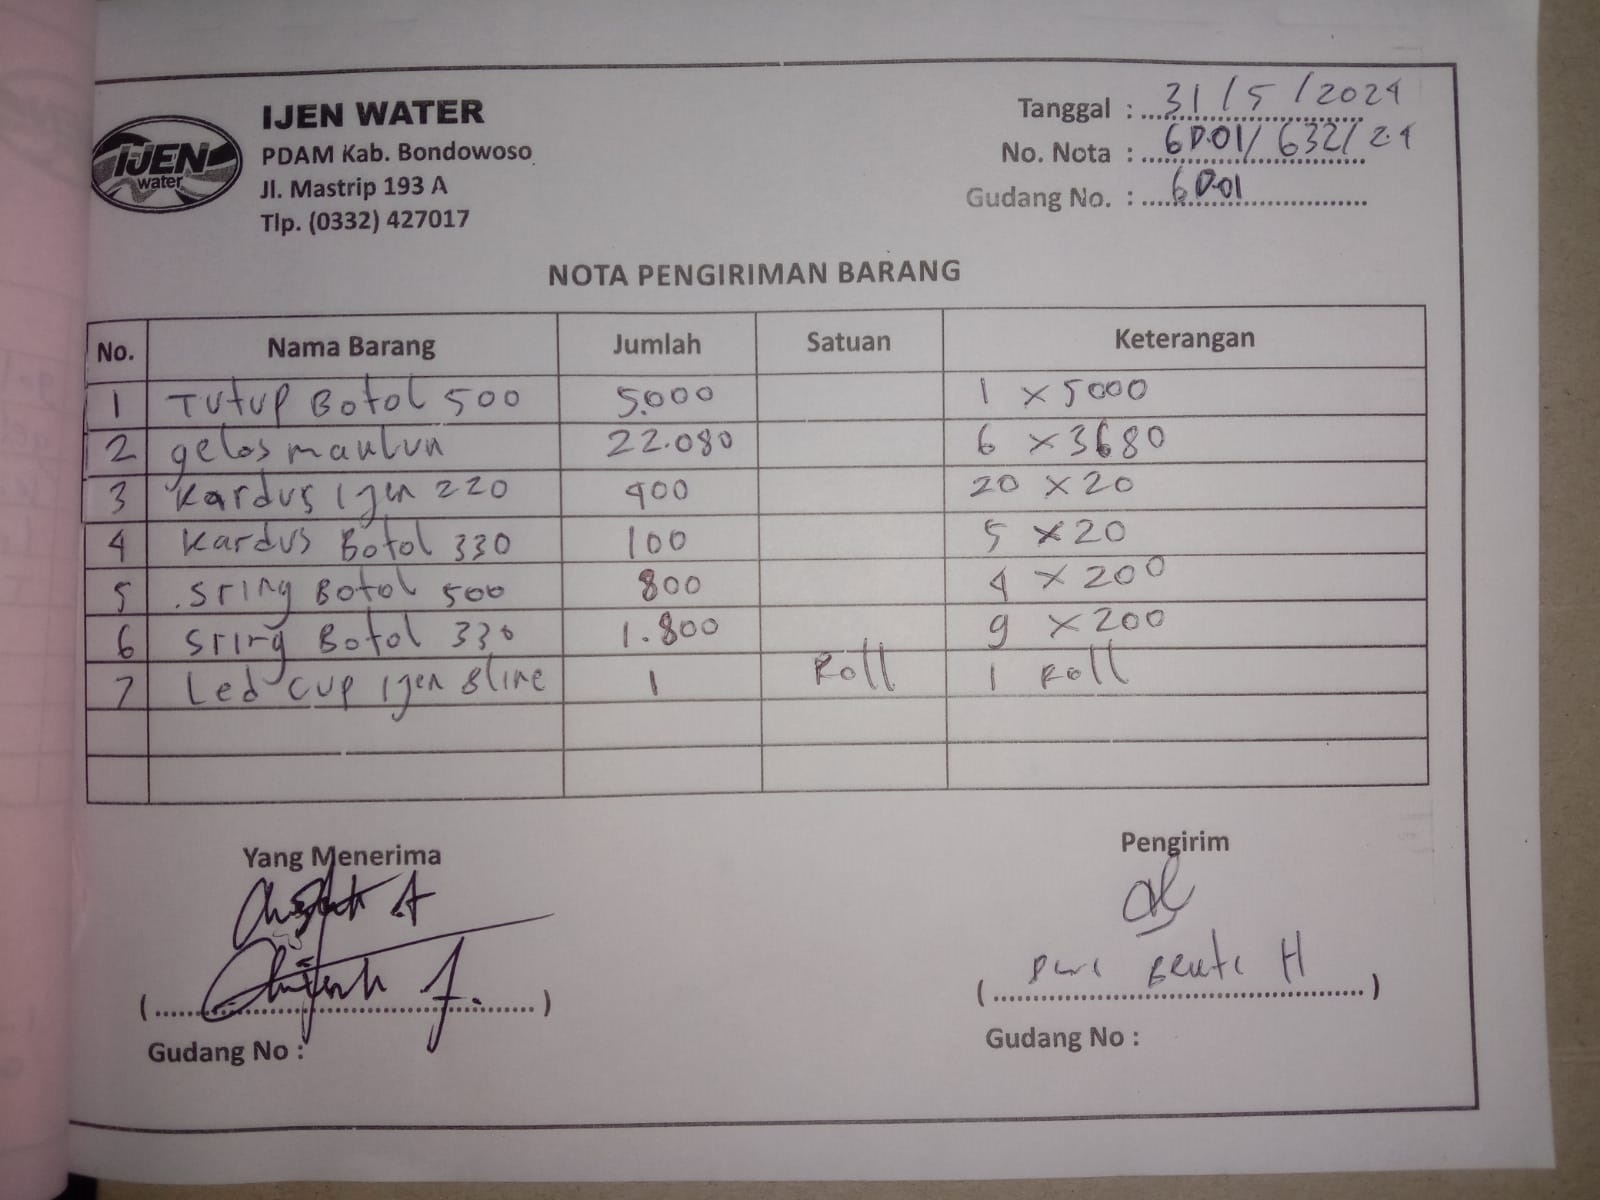 IJEN WATER
PDAM Kab. Bondowoso
Jl. Mastrip 193 A
Tlp. (0332) 427017
IJEN
water
Tanggal : 31/5/2024
No. Nota : GD01/632/24
Gudang No. : GD01
NOTA PENGIRIMAN BARANG
No. Nama Barang Jumlah Satuan Keterangan
1 Tutup Botol 500 5.000 1 x 5000
2 gelas 22.080 6 x 3680
3 Kardus Ijen 220 400 20 x 20
4 Kardus Botol 330 100 5 x 20
5 Sring Botol 500 800 4 x 200
6 Sring Botol 330 1.800 9 x 200
7 Led cup Ijen 8 line 1 Roll 1 Roll
Yang Menerima Pengirim
H
(....................) (....................)
Gudang No : Gudang No :